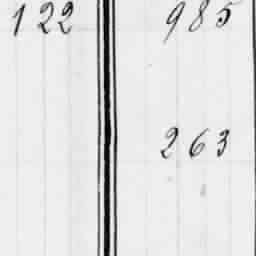 122 985
263